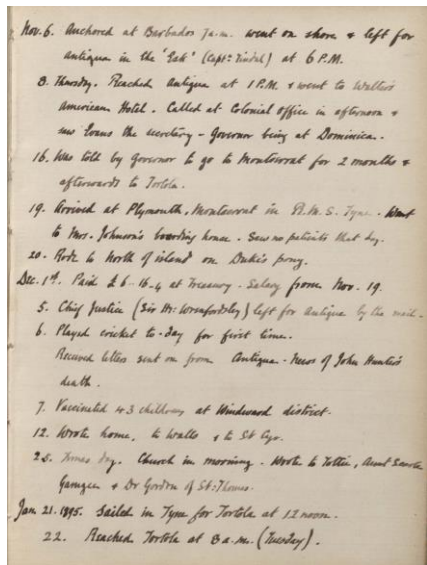 Nov. 6. Anchored at Barbados 7 a.m. went on shore & left for
Antigua in the 'Esk' (Captn Tindal) at 6 P.M.
8. Thursday. Reached Antigua at 1 P.M. & went to Walter's
American Hotel. Called at Colonial Office in afternoon &
saw Evans the secretary - Governor being at Dominica.
16. Was told by Governor to go to Montserrat for 2 months &
afterwards to Tortola.
19. Arrived at Plymouth, Montserrat in R.M.S. Tyne. Went
to Mrs. Johnson's boarding house. Saw no patients that day.
20. Rode to North of island on Duke's pony.
Dec. 1st. Paid £6-16-4 at Treasury. Salary from Nov. 19.
5. Chief Justice (Sir H: Wrenfordsley) left for Antigua by the mail.
6. Played cricket to-day for first time.
Received letters sent on from Antigua. News of John Hunter's
death.
7. Vaccinated 43 children at Windward district.
12. Wrote home, to Walls & to St Cyr.
25. Xmas day. Church in morning. Wrote to Tottie, Aunt
Gamgee & Dr Gordon of St: Thomas.
Jan. 21. 1895. Sailed in Tyne for Tortola at 12 noon.
22. Reached Tortola at 8 a.m. (Tuesday).